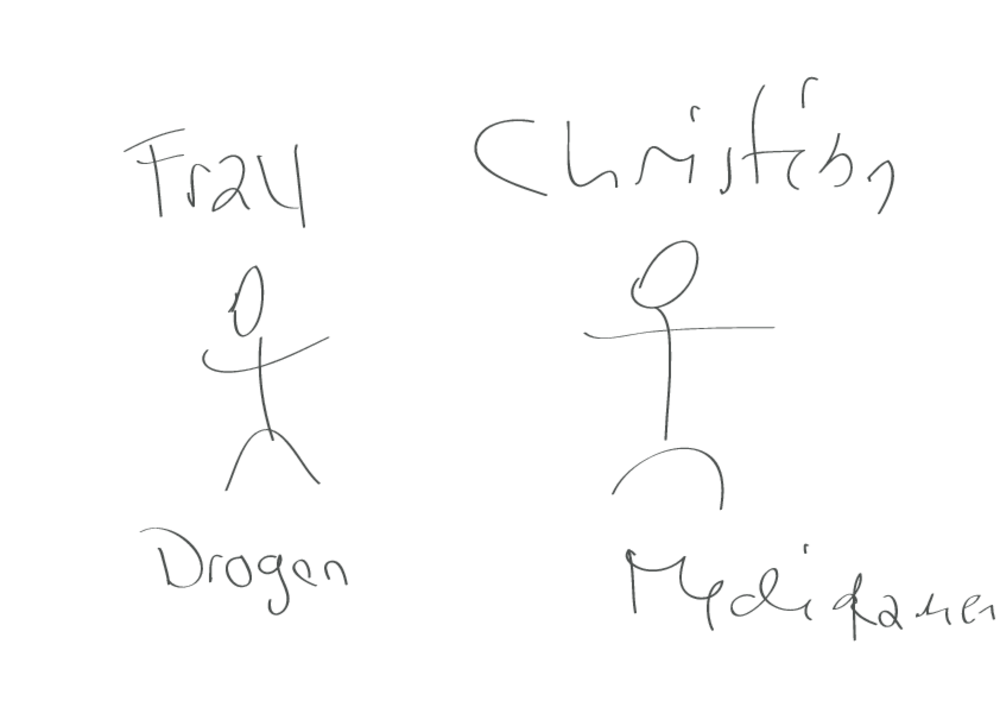 Frau Christian
Drogen Medikamen